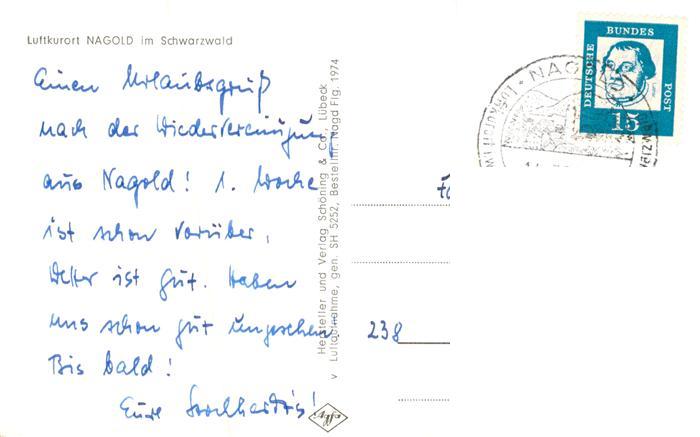 Luftkurort NAGOLD im Schwarzwald
Einen Urlaubsgruß
nach der Wiedervereinigung
aus Nagold! 1. Woche
ist schon vorüber,
Wetter ist gut. Haben
uns schon gut umgesehen.
Bis bald!
Eure
Hersteller und Verlag Schöning & Co., Lübeck
v Luftaufnahme, gen. SH 5252, Bestellnr. Nagd Flg. 1974
Agfa
238
NAG
DEUTSCHE
BUNDES
POST
15